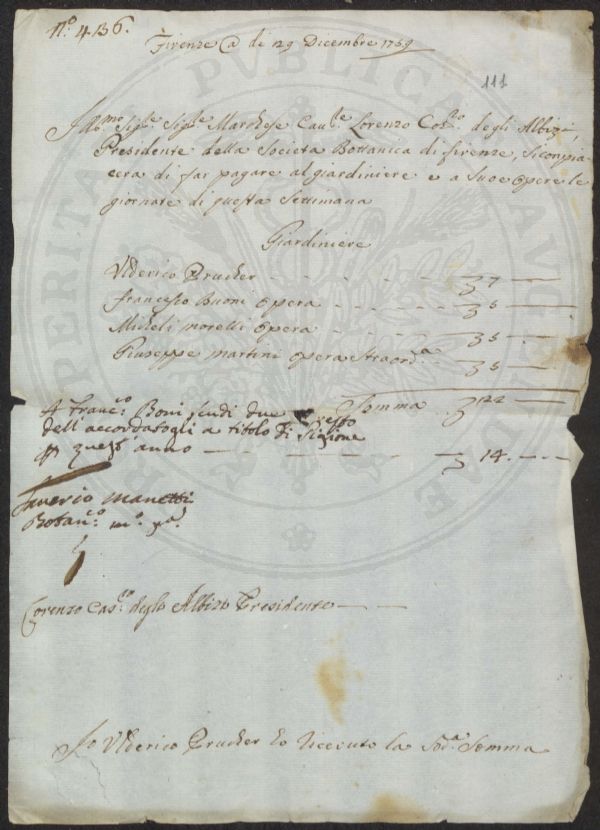 N.º 4136.
Firenze @ di 29 Dicembre 1759
111
Ill.mo Sig.re Sig.re Marchese Cau.re Lorenzo Cos.no degli Albizi,
Presidente della Societa Bottanica di firenze, si compia
cera di far pagare al giardiniere e a sue opere le
giornate di questa Settimana
Giardiniere
Vlderico Prucher - - - - - - 7 -
francesco Buoni opera - - - - - 5 -
Micheli morelli opera - - - - - 5 -
Giuseppe martini opera Straord.a - - 5 -
Somma - - 22 -
A Franc.o Boni scudi due resto
dell'accordatogli a titolo di Pigione
quest'anno - - - - 14. - -
Saverio Manetti
Botan.co m.o p.a
Lorenzo Cas.no degli Albizi Presidente - -
Io Vlderico Prucher ho riceuuto la Sod.a Somma
PERITA PVBLICAE AVGENDAE